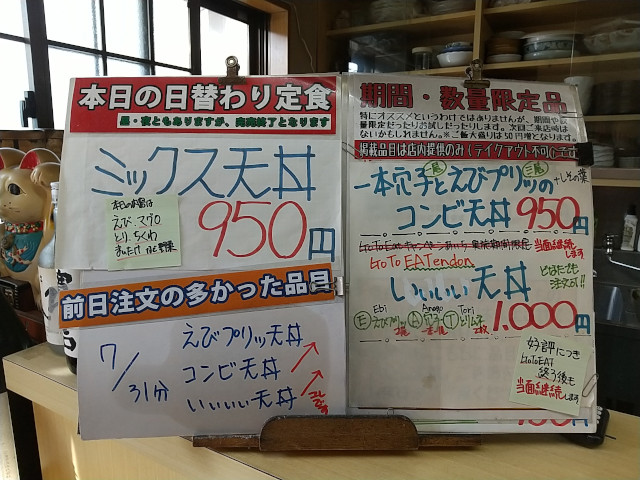 本日の日替わり定食
昼・夜ともありますが、完売終了となります
ミックス天丼
950円
えび、マグロ
とり、ちくわ
前日注文の多かった品目
7/31分
えびプリッツ天丼
コンビ天丼
いいいい天丼
期間・数量限定品
特にオススメというわけではありませんが、期間や数
量限定だったりお試しだったりします。次回ご来店時は
ないかもしれません。※ご飯大盛りは50円増となります。
掲載品目は店内提供のみ(テイクアウト不可)です
一尾 二尾
一本穴子とえびプリッツの
+しその葉
コンビ天丼 950円
当面継続します
GoTo EATendon
いいいい天丼
どなたでも
注文可!!
Ebi Anago Tori
1,000円
好評につき
GoToEAT
終了後も
当面継続します